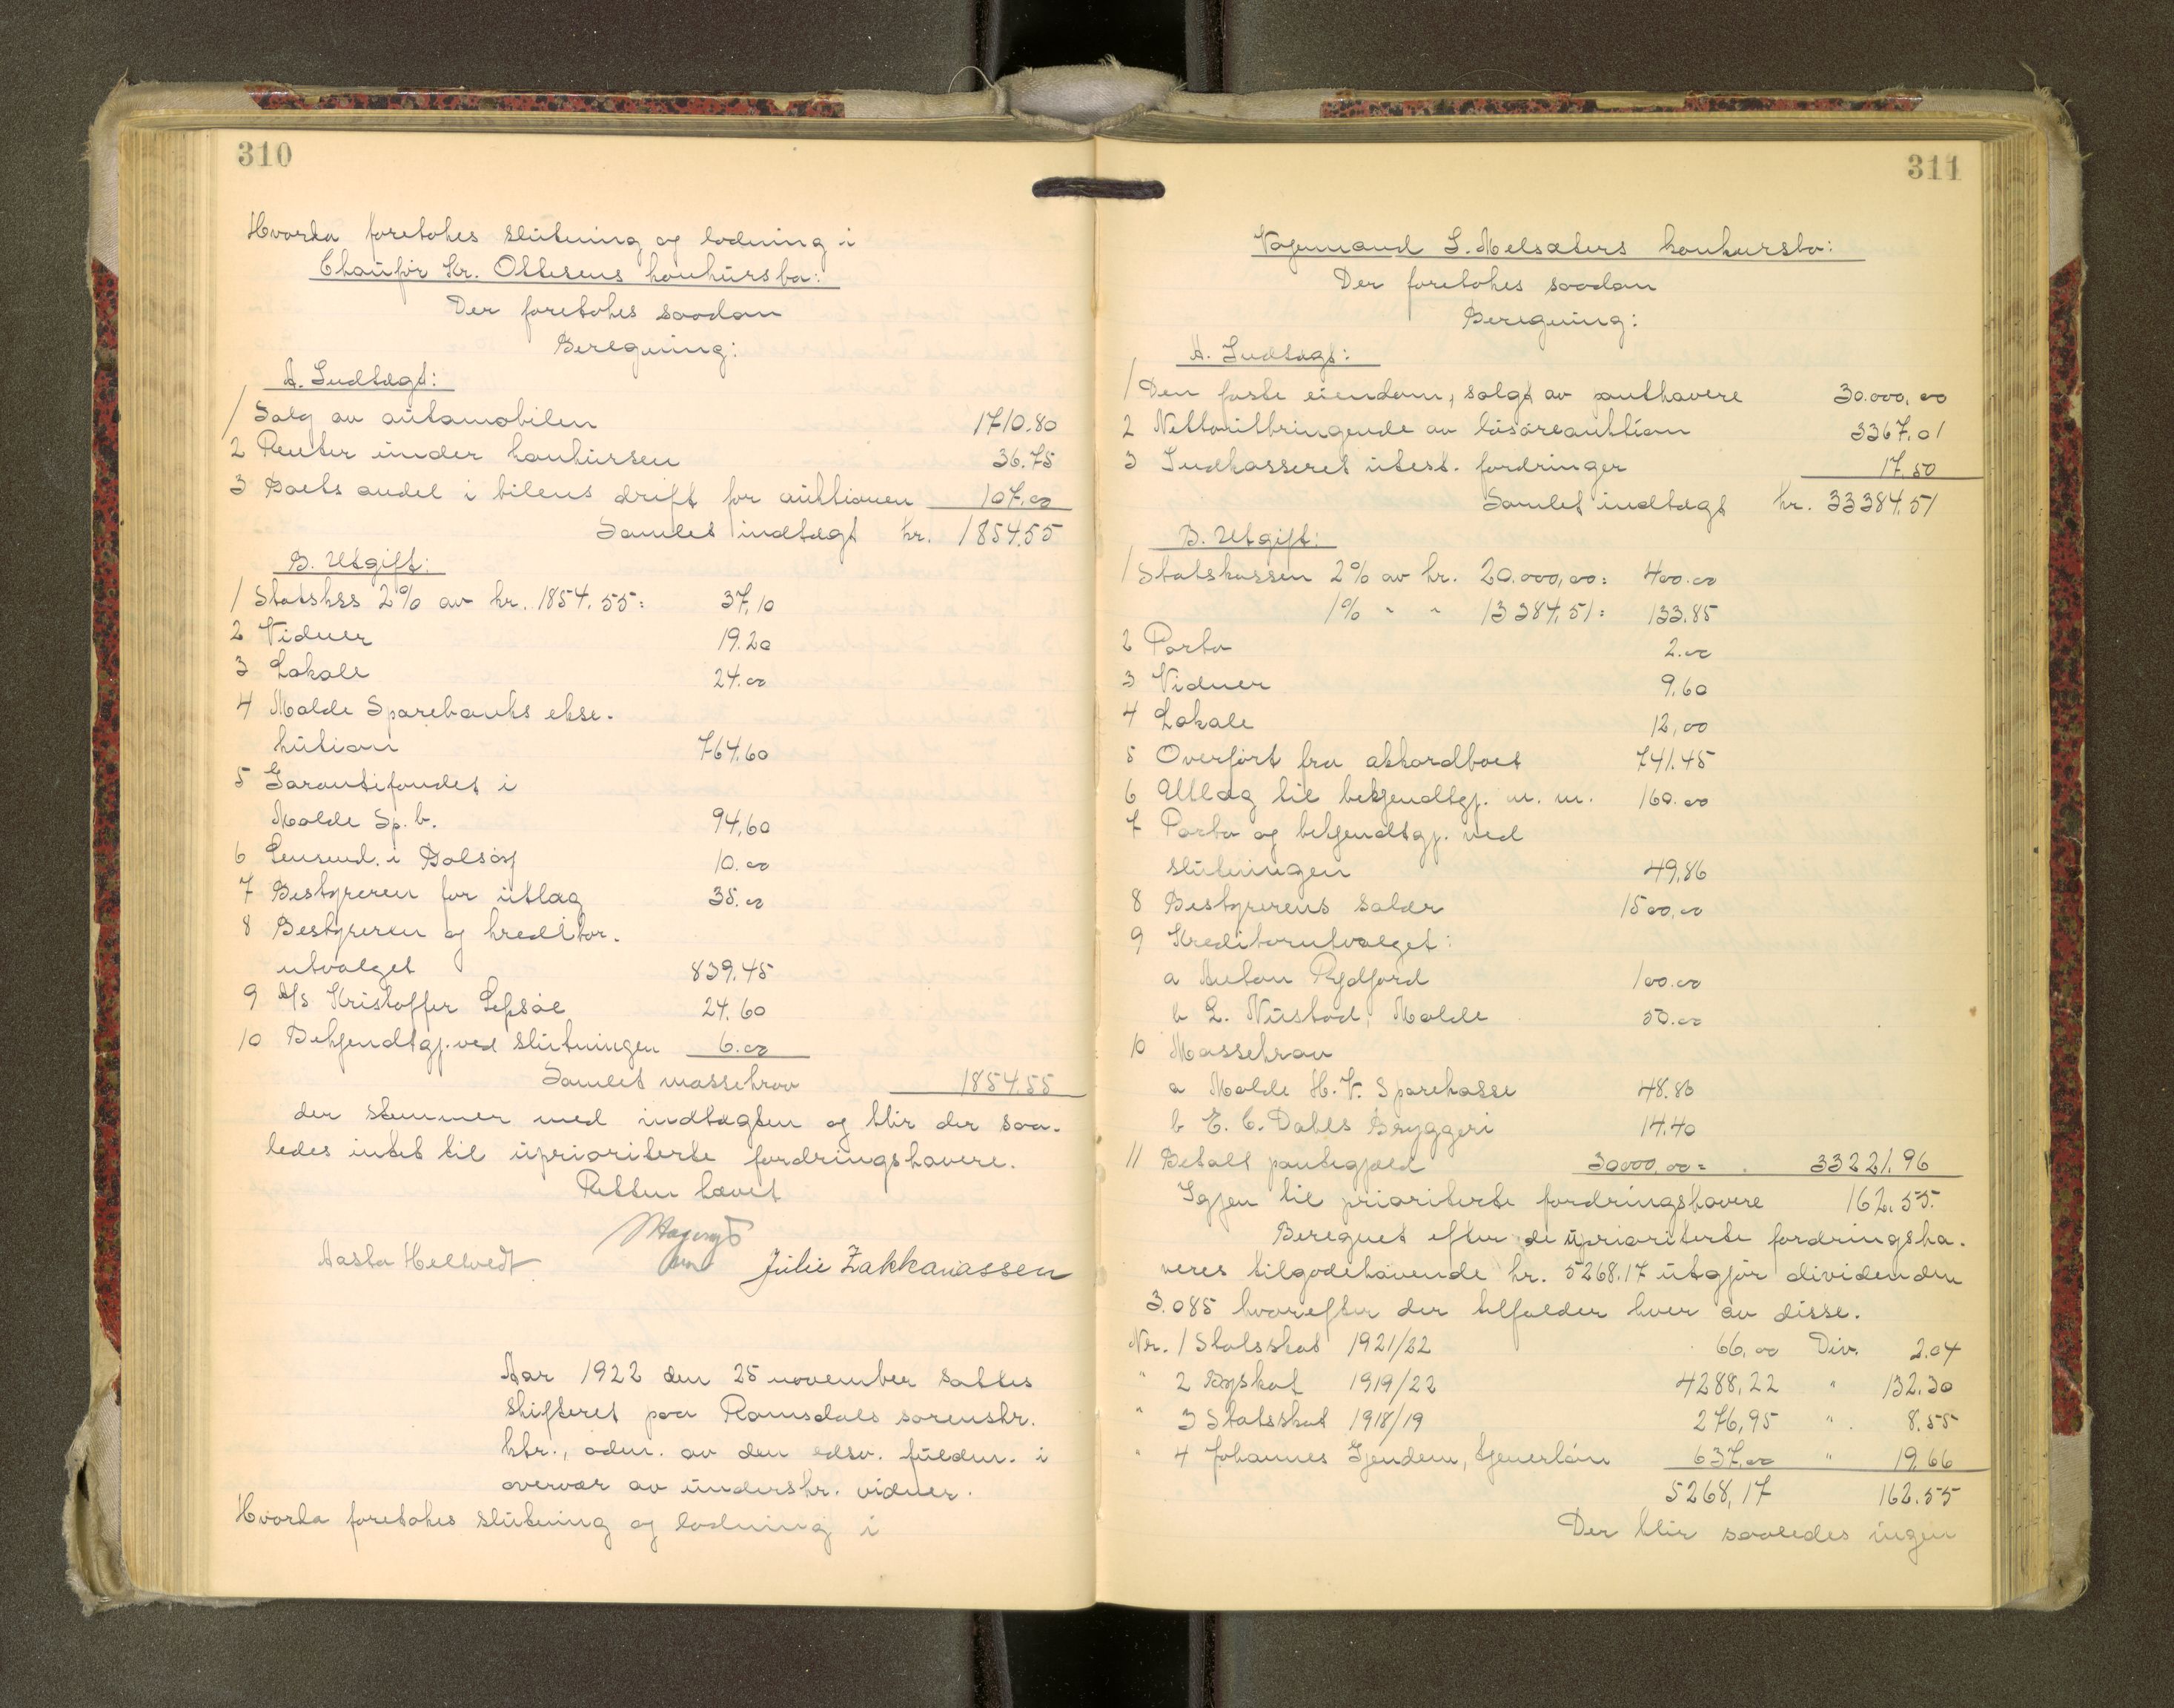 310
Hvorda foretokes slutning og lodning i
Chauför Kr. Ottesens konkursbo:
Der foretokes saadan
Beregning:
A. Indtægt:
1 Salg av automobilen 1710.80
2 Renter under konkursen 36.75
3 Boets andel i bilens drift for auktionen 107.00
Samlet indtægt kr. 1854.55
B. Utgift:
1 Statskss 2% av kr. 1854.55: 37,10
2 Vidner 19.20
3 Lokale 24.00
4 Molde Sparebanks ekse-
kution 764,60
5 Garantifondet i
Molde Sp. b. 94,60
6 Lensmd. i Bolsöy 10.00
7 Bestyreren for utlæg 35.00
8 Bestyreren og kreditor-
utvalget 839.45
9 A/S Kristoffer Lepsöe 24.60
10 Bekjendtgj. ved slutningen 6.00
Samlet massekrav 1854.55
der stemmer med indtægten og blir der saa-
ledes intet til upriorierte fordringshavere.
Retten hævet
Aasta Hellvedt Julie Zakkariassen
Aar 1922 den 25 november sattes
skifteret paa Romsdals sorenskr.
ktr., adm. av den edsv. fuldm. i
overvær av underskr. vidner.
Hvorda foretokes slutning og lodning i
311
Vognmand S. Melsæters konkursbo:
Der foretokes saadan
Beregning:
A. Indtægt:
1 Den faste eiendom, solgt av panthavere 30.000,00
2 Nettoutbringende av lösöreauktion 3367.01
3 Indkasseret utest. fordringer 17.50
Samlet indtægt kr. 33384.51
B. Utgift:
1 Statskassen 2% av kr. 20.000,00: 400.00
1% " " 13384,51: 133.85
2 Porto 2.00
3 Vidner 9,60
4 Lokale 12,00
5 Overfört fra akkordboet 741.45
6 Utlæg til bekjendtgj. m. m. 160.00
7 Porto og bekjendtgj. ved
slutningen 49,86
8 Bestyrerens salær 1500,00
9 Kreditorutvalget:
a Anton Rydjord 100.00
b L. Nustad, Molde 50.00
10 Massekrav
a Molde H. V. Sparekasse 48.80
b E. C. Dahls Bryggeri 14.40
11 Betalt pantegjæld 30000,00= 33221.96
Igjen til prioriterte fordringshavere 162.55.
Beregnet efter de uprioriterte fordringsha-
veres tilgodehavende kr. 5268.17 utgjör dividenden
3.085 hvorefter der tilfalder hver av disse.
Nr. 1 Statsskat 1921/22 66,00 Div. 2.04
" 2 Byskat 1919/22 4288,22 " 132.30
" 3 Statsskat 1918/19 276,95 " 8.55
" 4 Johannes Gjendem, tjenerlön 637.00 " 19,66
5268,17 162.55
Der blir saaledes ingen